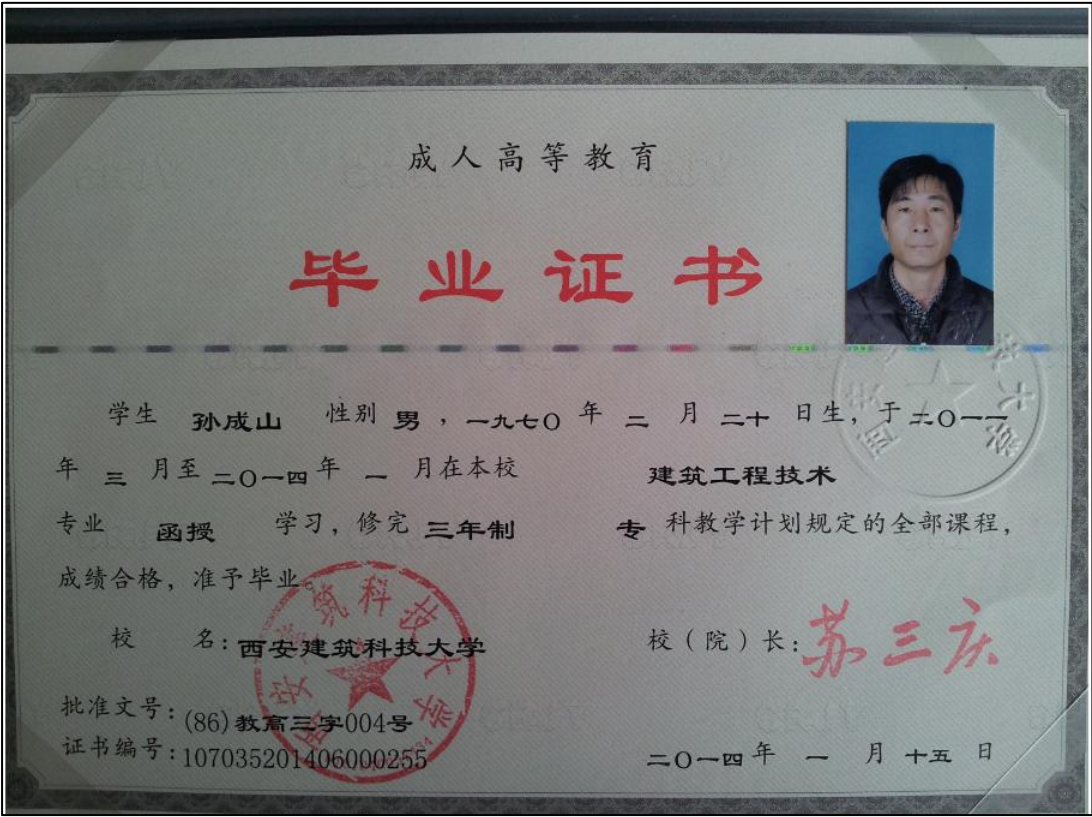 成人高等教育
毕业证书
学生 孙成山 性别 男，一九七〇 年 二 月 二十 日生，于 二〇一一
年 三 月至 二〇一四 年 一 月在本校 建筑工程技术
专业 函授 学习，修完 三年制 专 科教学计划规定的全部课程，
成绩合格，准予毕业。
校 名：西安建筑科技大学 校（院）长：苏三庆
西安建筑科技大学
批准文号：(86)教高三字004号
证书编号：107035201406000255 二〇一四 年 一 月 十五 日